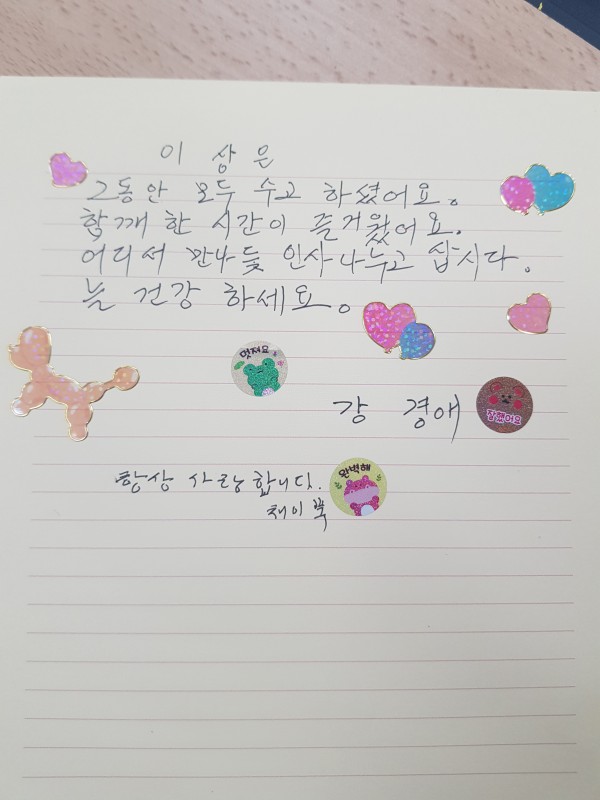 이 상 은
그동안 모두 수고 하셨어요.
함께 한 시간이 즐거웠어요.
어디서 만나듯 인사 나누고 삽시다.
늘 건강 하세요.
멋져요
강 경애
잘했어요
항상 사랑합니다.
완벽해
채이